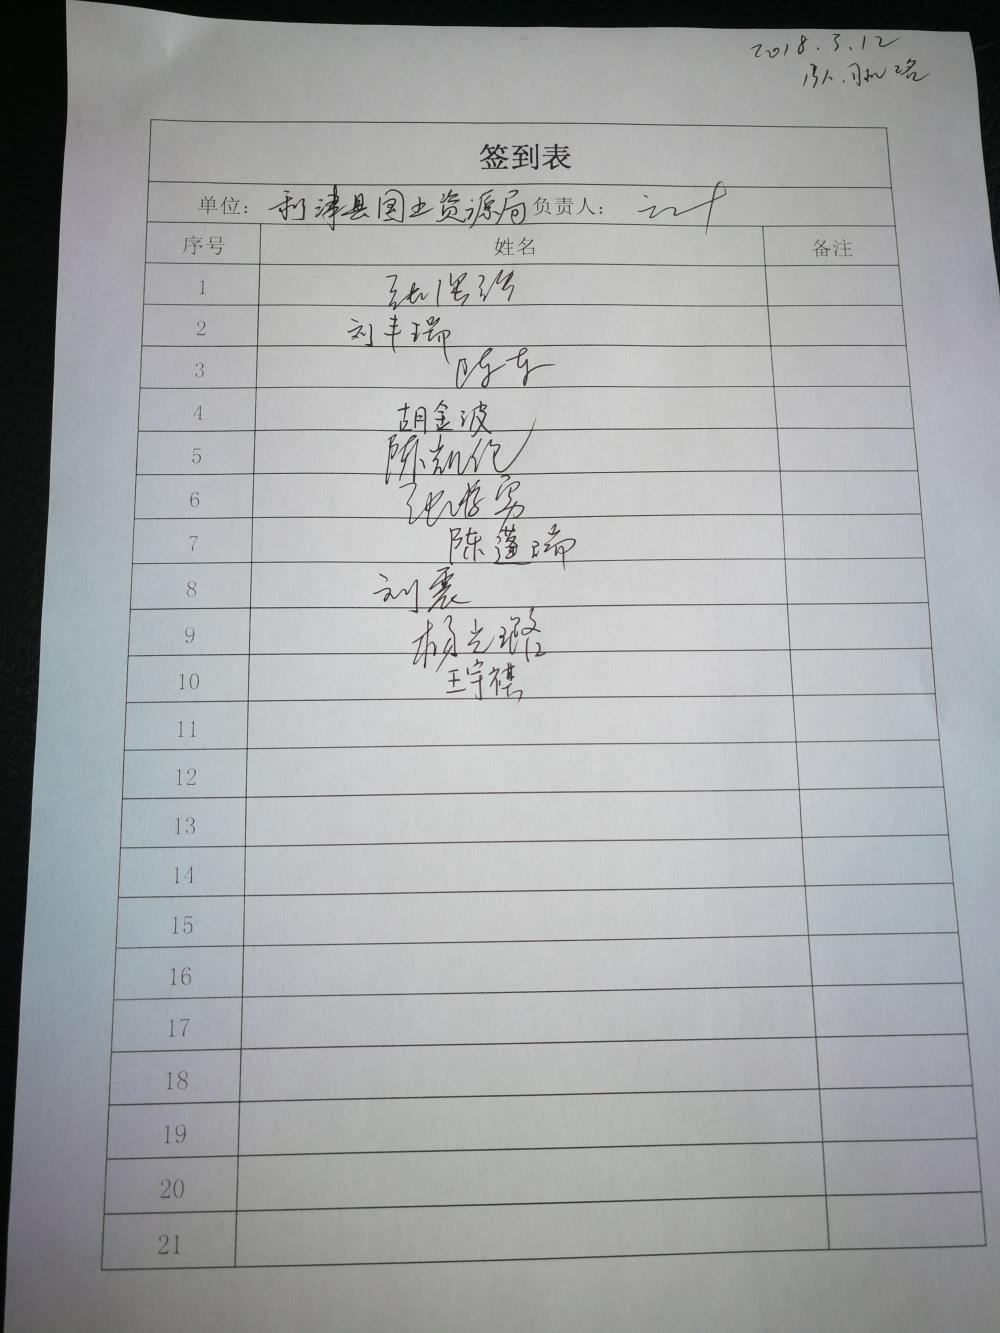 2018.3.12
签到表
单位: 利津县国土资源局 负责人:
序号 姓名 备注
1 张保强
2 刘丰瑞
3 陈东
4 胡金波
5 陈凯伦
6 张学勇
7 陈蓬瑞
8 刘震
9 杨光璐
10 王宇祺
11
12
13
14
15
16
17
18
19
20
21